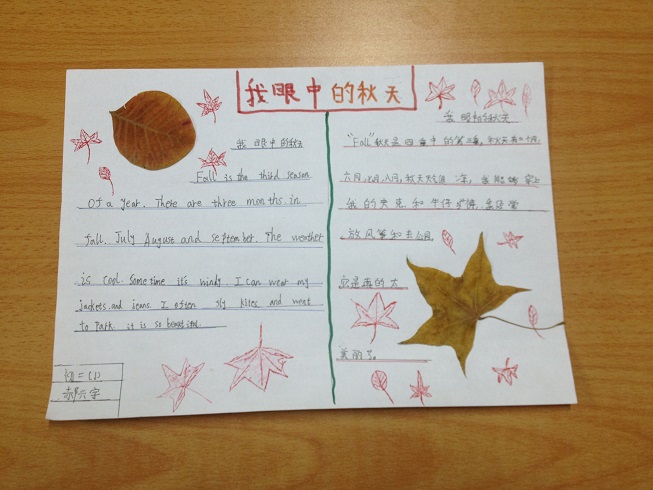 我眼中的秋天
我眼中的秋天
Fall is the third season
Of a year. There are three months in
fall. July August and september. The weather
is cool. Sometime it's windy. I can wear my
jackets and jeans. I often fly kites and went
to Park it is so beautiful.
二(1)
我眼中的秋天
"Fall"秋天是四季中的第三季,秋天有三个月,
六月,七月,八月,秋天天气凉,我能够穿上
我的夹克和牛仔裤,我经常
放风筝和去公园
它是真的太
美丽了。